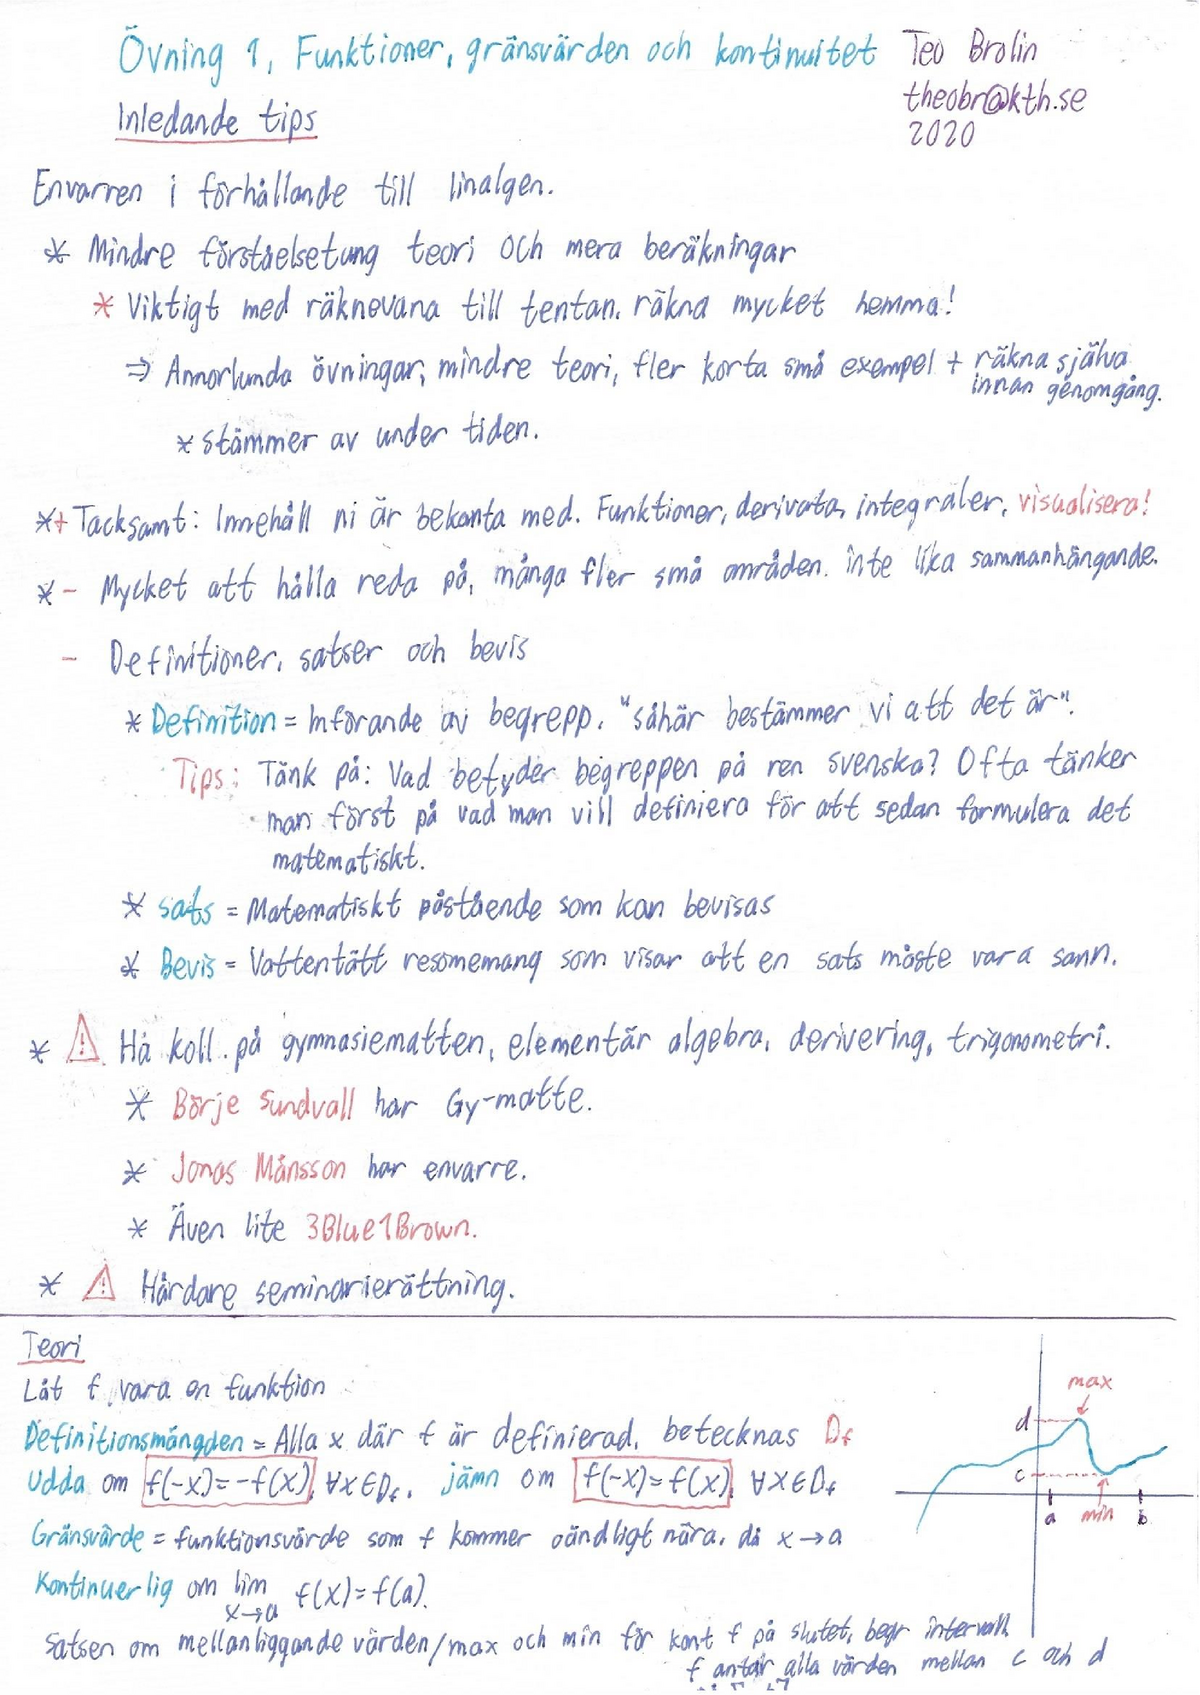 Övning 1, Funktioner, gränsvärden och kontinuitet Teo Brolin
theobr@kth.se
Inledande tips
2020
Envarren i förhållande till linalgen.
* Mindre förståelsetung teori och mera beräkningar
* Viktigt med räknevana till tentan, räkna mycket hemma!
⇒ Annorlunda övningar, mindre teori, fler korta små exempel + räkna själva
innan genomgång.
* stämmer av under tiden.
*+ Tacksamt: Innehåll ni är bekanta med. Funktioner, derivata, integraler, visualisera!
* - Mycket att hålla reda på, många fler små områden. inte lika sammanhängande.
- Definitioner, satser och bevis
* Definition = Införande av begrepp. "såhär bestämmer vi att det är".
Tips: Tänk på: Vad betyder begreppen på ren svenska? Ofta tänker
man först på vad man vill definiera för att sedan formulera det
matematiskt.
* Sats = Matematiskt påstående som kan bevisas
* Bevis = Vattentätt resonemang som visar att en sats måste vara sann.
* ⚠ Ha koll på gymnasiematten, elementär algebra, derivering, trigonometri.
* Börje Sundvall har Gy-matte.
* Jonas Månsson har envarre.
* Även lite 3Blue1Brown.
* ⚠ Hårdare seminarierättning.
Teori
Låt f vara en funktion
Definitionsmängden = Alla x där f är definierad, betecknas D_f
Udda om f(-x)=-f(x), ∀x∈D_f, jämn om f(-x)=f(x), ∀x∈D_f
Gränsvärde = funktionsvärde som f kommer oändligt nära, då x→a
Kontinuerlig om lim f(x)=f(a).
x→a
max
d
c
a
min
b
Satsen om mellanliggande värden/max och min för kont f på slutet, begr intervall
f antar alla värden mellan c och d